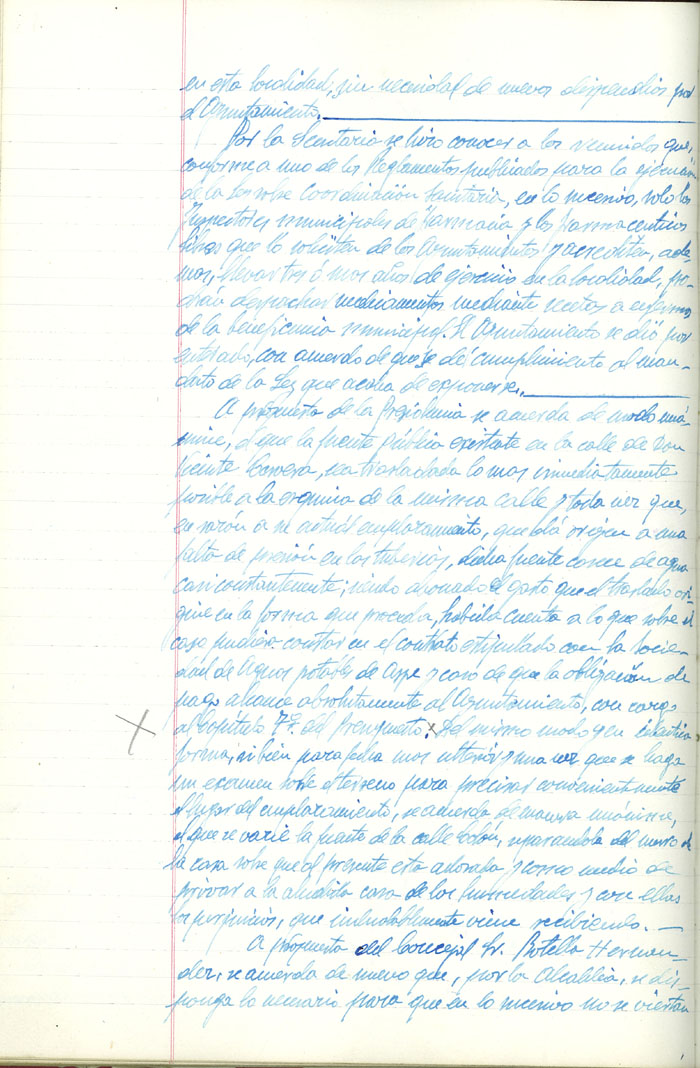 en esta localidad, sin necesidad de nuevos dispendios por
el Ayuntamiento.
Por la Secretaría se hizo conocer a los reunidos que,
conforme a uno de los Reglamentos publicados para la ejecución
de la Ley sobre Coordinación Sanitaria, en lo sucesivo, solo los
Inspectores municipales de Farmacia y los farmaceuticos
libres que lo soliciten de los Ayuntamientos y acrediten, ade-
mas, llevar tres ó mas años de ejercicio en la localidad, po-
drán despachar medicamentos mediante recetas a enfermos
de la beneficencia municipal. El Ayuntamiento se dió por
enterado, con acuerdo de que se dé cumplimiento al man-
dato de la Ley que acaba de exponerse.
A propuesta de la Presidencia se acuerda de modo uná-
nime, el que la fuente pública existente en la calle de Don
Vicente Cervera, sea trasladada lo mas inmediatamente
posible a la esquina de la misma calle y toda vez que,
en razón a su actual emplazamiento, que dá origen a una
falta de presión en las tuberias, dicha fuente carece de agua
casi constantemente; siendo abonado el gasto que el traslado ori-
gine en la forma que proceda, habida cuenta a lo que sobre el
caso pudiera constar en el contrato estipulado con la Socie-
dad de Aguas potables de Aspe y caso de que la obligación de
pago alcance absolutamente al Ayuntamiento, con cargo
al capítulo 7º. del Presupuesto. Del mismo modo y en identica
forma, si bien para fecha mas ulterior y una vez que se haga
un examen sobre el terreno para precisar convenientemente
el lugar del emplazamiento, se acuerda de manera unánime,
el que se varíe la fuente de la calle Colón, separandola del muro de
la casa sobre que al presente esta adosada y como medio de
privar a la aludida casa de las humedades y con ellas
los perjuicios, que indudablemente viene recibiendo.
A propuesta del Concejal Sr. Botella Hernan-
dez, se acuerda de nuevo que, por la Alcaldía, se dis-
ponga lo necesario para que en lo sucesivo no se viertan